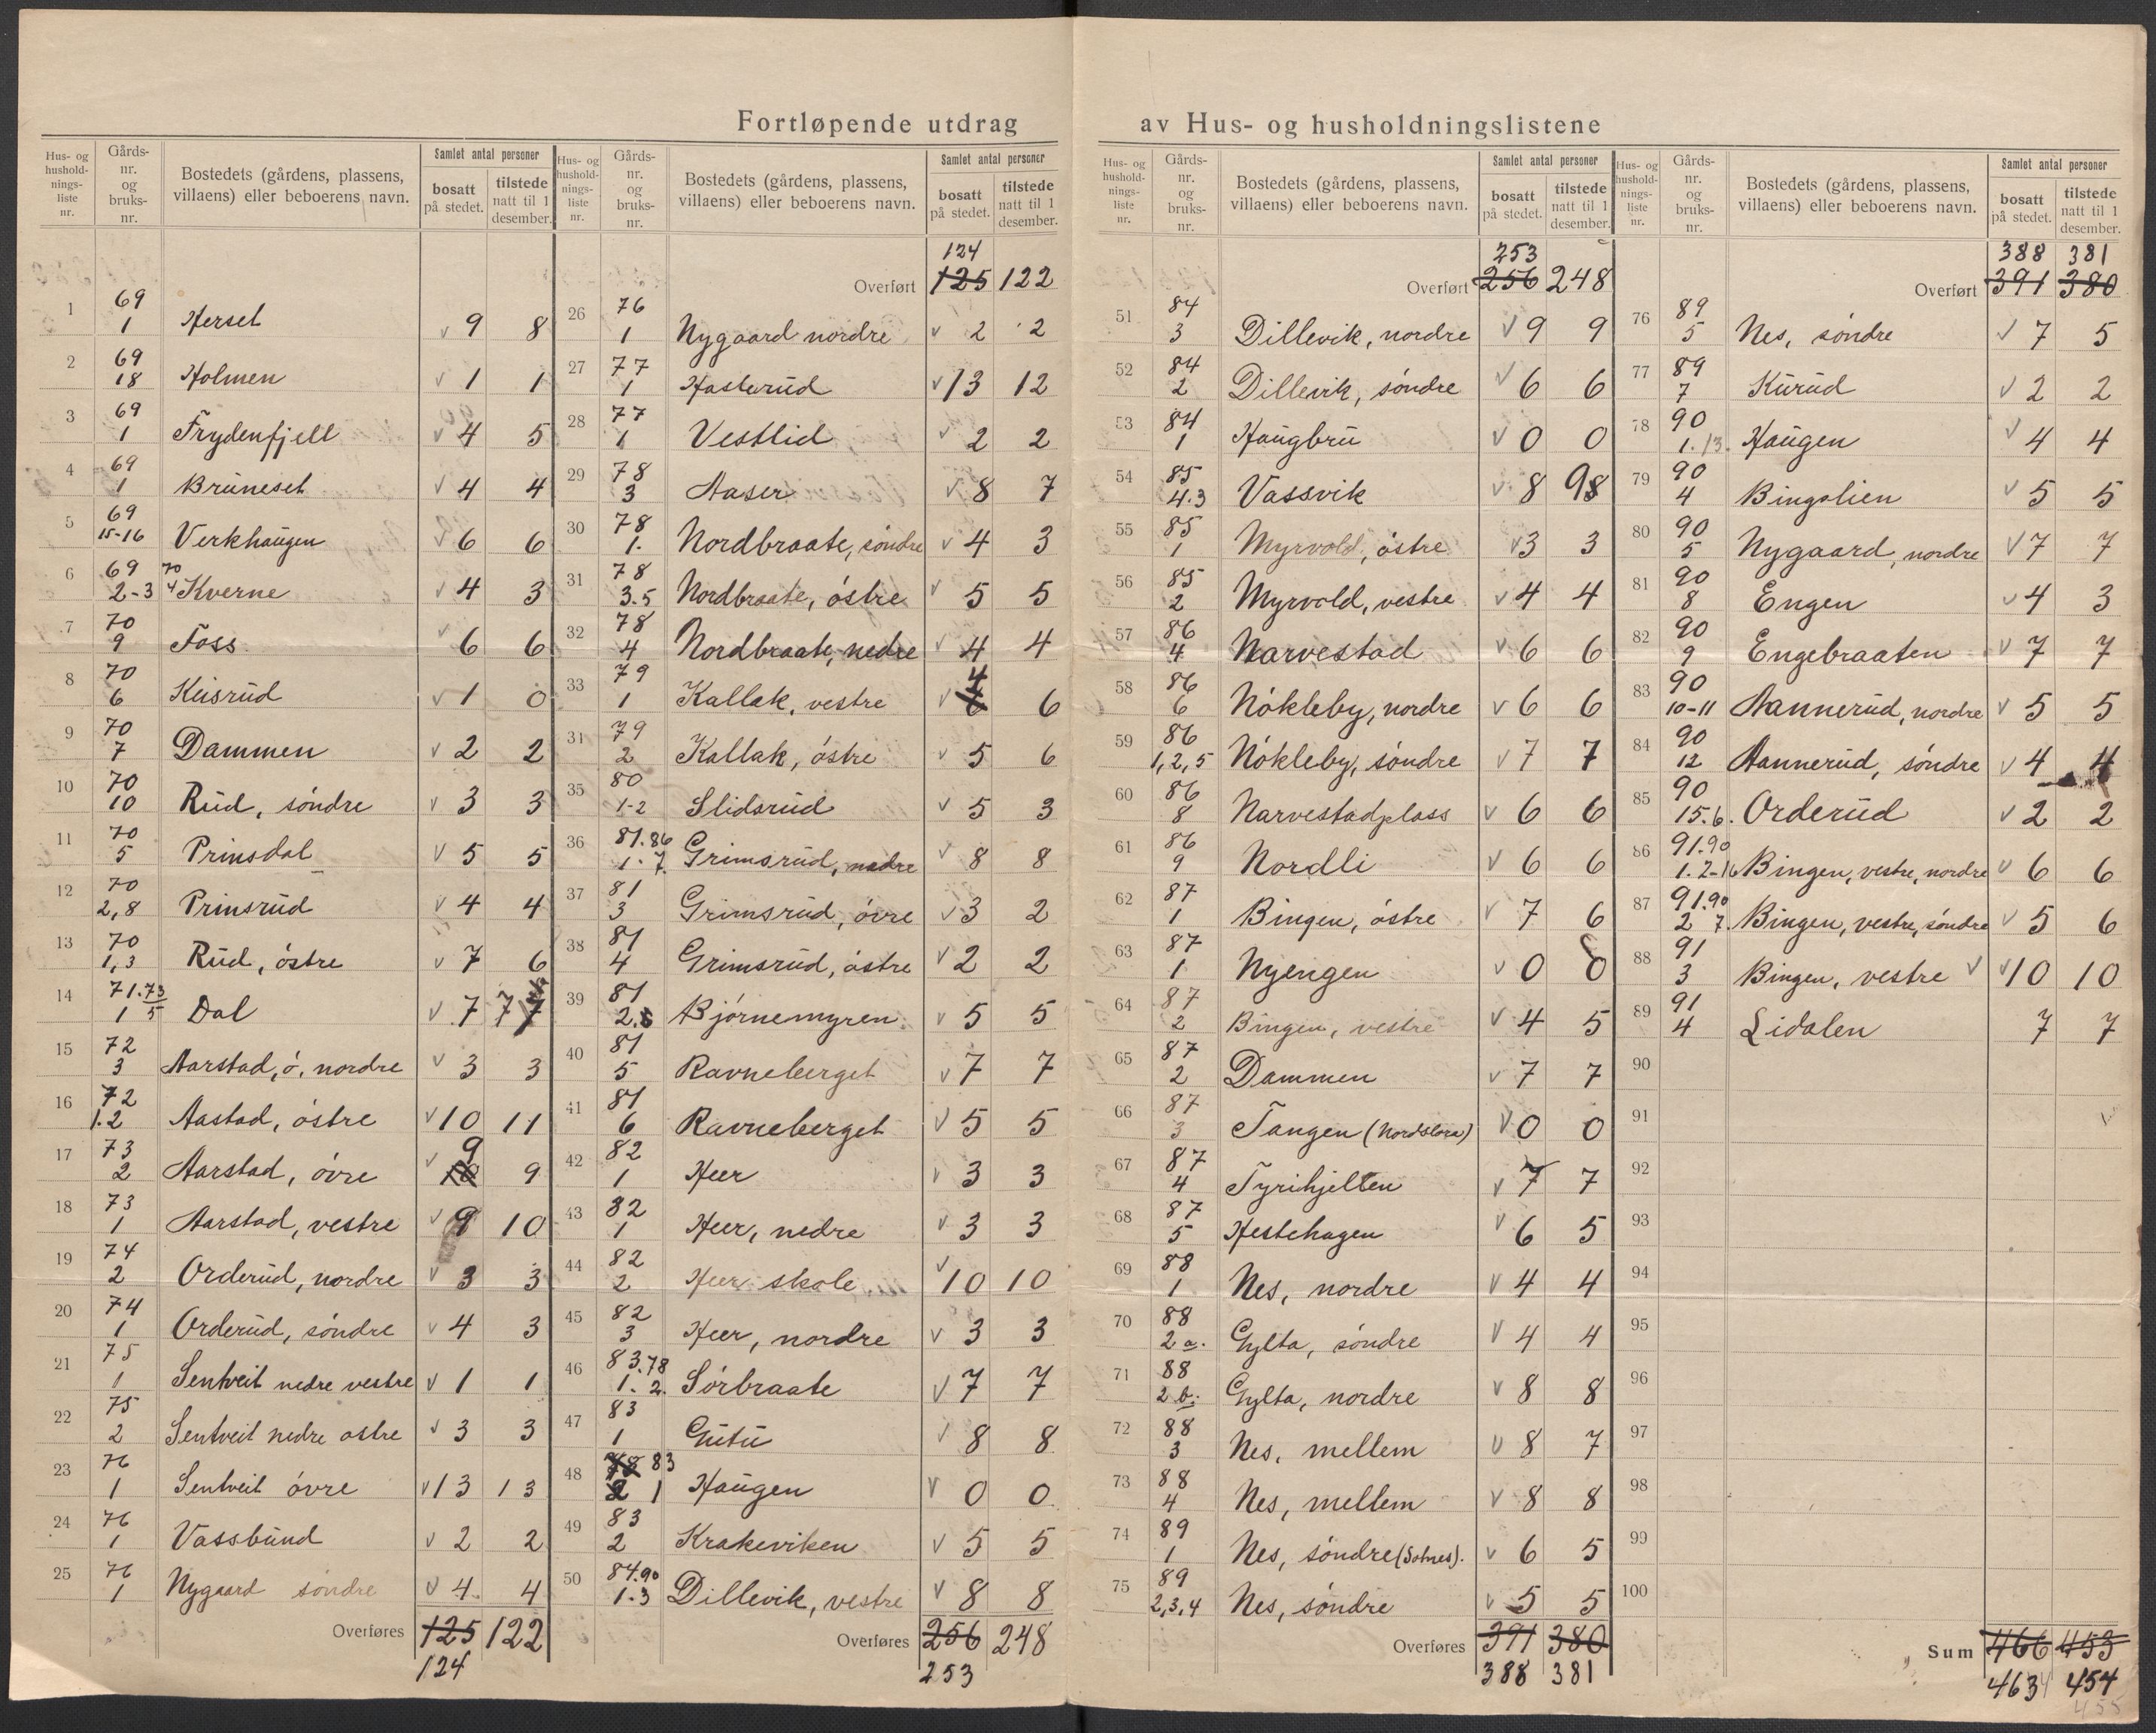 Fortløpende utdrag av Hus- og husholdningslistene
Hus- og husholdningsliste nr. Gårds-nr. og bruks-nr. Bostedets (gårdens, plassens, villaens) eller beboerens navn. Samlet antal personer bosatt på stedet. tilstede natt til 1 desember.
1 69 1 Herset v 9 8
2 69 18 Holmen v 1 1
3 69 1 Frydenfjell v 4 5
4 69 1 Bruneset v 4 4
5 69 15-16 Verkhaugen v 6 6
6 69 2-3 70 4 Kverne v 4 3
7 70 9 Foss v 6 6
8 70 6 Keisrud v 1 0
9 70 7 Dammen v 2 2
10 70 10 Rud, söndre v 3 3
11 70 5 Prinsdal v 5 5
12 70 2,8 Prinsrud v 4 4
13 70 1,3 Rud, östre v 7 6
14 71.73 1 5 Dal v 7 7
15 72 3 Aarstad, ö. nordre v 3 3
16 72 1.2 Aastad, östre v 10 11
17 73 2 Aarstad, övre v 10 9 9
18 73 1 Aarstad, vestre v 9 10
19 74 2 Orderud, nordre v 3 3
20 74 1 Orderud, söndre v 4 3
21 75 1 Sentveit nedre vestre v 1 1
22 75 2 Sentveit nedre ostre v 3 3
23 76 1 Sentveit övre v 13 13
24 76 1 Vassbund v 2 2
25 76 1 Nygaard söndre v 4 4
Overføres 125 122
124
Hus- og husholdningsliste nr. Gårds-nr. og bruks-nr. Bostedets (gårdens, plassens, villaens) eller beboerens navn. Samlet antal personer bosatt på stedet. tilstede natt til 1 desember.
124
Overført 125 122
26 76 1 Nygaard nordre v 2 2
27 77 1 Hasterud v 13 12
28 77 1 Vestlid v 2 2
29 78 3 Aaser v 8 7
30 78 1. Nordbraate, söndre v 4 3
31 78 3.5 Nordbraate, östre v 5 5
32 78 4 Nordbraate, nedre v 4 4
33 79 1 Kallak, vestre v 4 6
34 79 2 Kallak, östre v 5 6
35 80 1-2 Slidsrud v 5 3
36 81.86 1. 7. Grimsrud, nedre v 8 8
37 81 3 Grimsrud, övre v 3 2
38 81 4 Grimsrud, östre v 2 2
39 81 2. Björnemyren v 5 5
40 81 5 Ravneberget v 7 7
41 81 6 Ravneberget v 5 5
42 82 1 Heer v 3 3
43 82 1 Heer, nedre v 3 3
44 82 2 Heer skole v 10 10
45 82 3 Heer, nordre v 3 3
46 83.78 1. 2. Sörbraate v 7 7
47 83 1 Gutu v 8 8
48 78 83 2 1 Haugen v 0 0
49 83 2 Krakeviken v 5 5
50 84.90 1.3 Dillevik, vestre v 8 8
Overføres 256 248
253
Hus- og husholdningsliste nr. Gårds-nr. og bruks-nr. Bostedets (gårdens, plassens, villaens) eller beboerens navn. Samlet antal personer bosatt på stedet. tilstede natt til 1 desember.
253
Overført 256 248
51 84 3 Dillevik, nordre v 9 9
52 84 2 Dillevik, söndre v 6 6
53 84 1 Haugbru v 0 0
54 85 4.3 Vassvik v 8 98
55 85 1 Myrvold, östre v 3 3
56 85 2 Myrvold, vestre v 4 4
57 86 4 Narvestad v 6 6
58 86 6 Nökleby, nordre v 6 6
59 86 1,2,5 Nökleby, söndre v 7 7
60 86 8 Narvestadplass v 6 6
61 86 9 Nordli v 6 6
62 87 1 Bingen, östre v 7 6
63 87 1 Nyengen v 0 0
64 87 2 Bingen, vestre v 4 5
65 87 2 Dammen v 7 7
66 87 3 Tangen (Nordstora) v 0 0
67 87 4 Tyrihjelten v 7 7
68 87 5 Hestehagen v 6 5
69 88 1 Nes, nordre v 4 4
70 88 2 a. Gylta, söndre v 4 4
71 88 2 b. Gylta, nordre v 8 8
72 88 3 Nes, mellem v 8 7
73 88 4 Nes, mellem v 8 8
74 89 1 Nes, söndre (Solnes). v 6 5
75 89 2,3,4 Nes, söndre v 5 5
Overføres 391 380
388 381
Hus- og husholdningsliste nr. Gårds-nr. og bruks-nr. Bostedets (gårdens, plassens, villaens) eller beboerens navn. Samlet antal personer bosatt på stedet. tilstede natt til 1 desember.
388 381
Overført 391 380
76 89 5 Nes, söndre v 7 5
77 89 7 Kurud v 2 2
78 90 1.13. Haugen v 4 4
79 90 4 Bingslien v 5 5
80 90 5 Nygaard, nordre v 7 7
81 90 8 Engen v 4 3
82 90 9 Engebraaten v 7 7
83 90 10-11 Aannerud, nordre v 5 5
84 90 12 Aannerud, söndre v 4 4
85 90 15.6. Orderud v 2 2
86 91.90 1. 2-16 Bingen, vestre, nordre v 6 6
87 91.90 2 7. Bingen, vestre, söndre v 5 6
88 91 3 Bingen, vestre v v 10 10
89 91 4 Lidalen 7 7
90
91 v
92
93
94
95
96
97
98
99
100
Sum 466 453
463 454
455